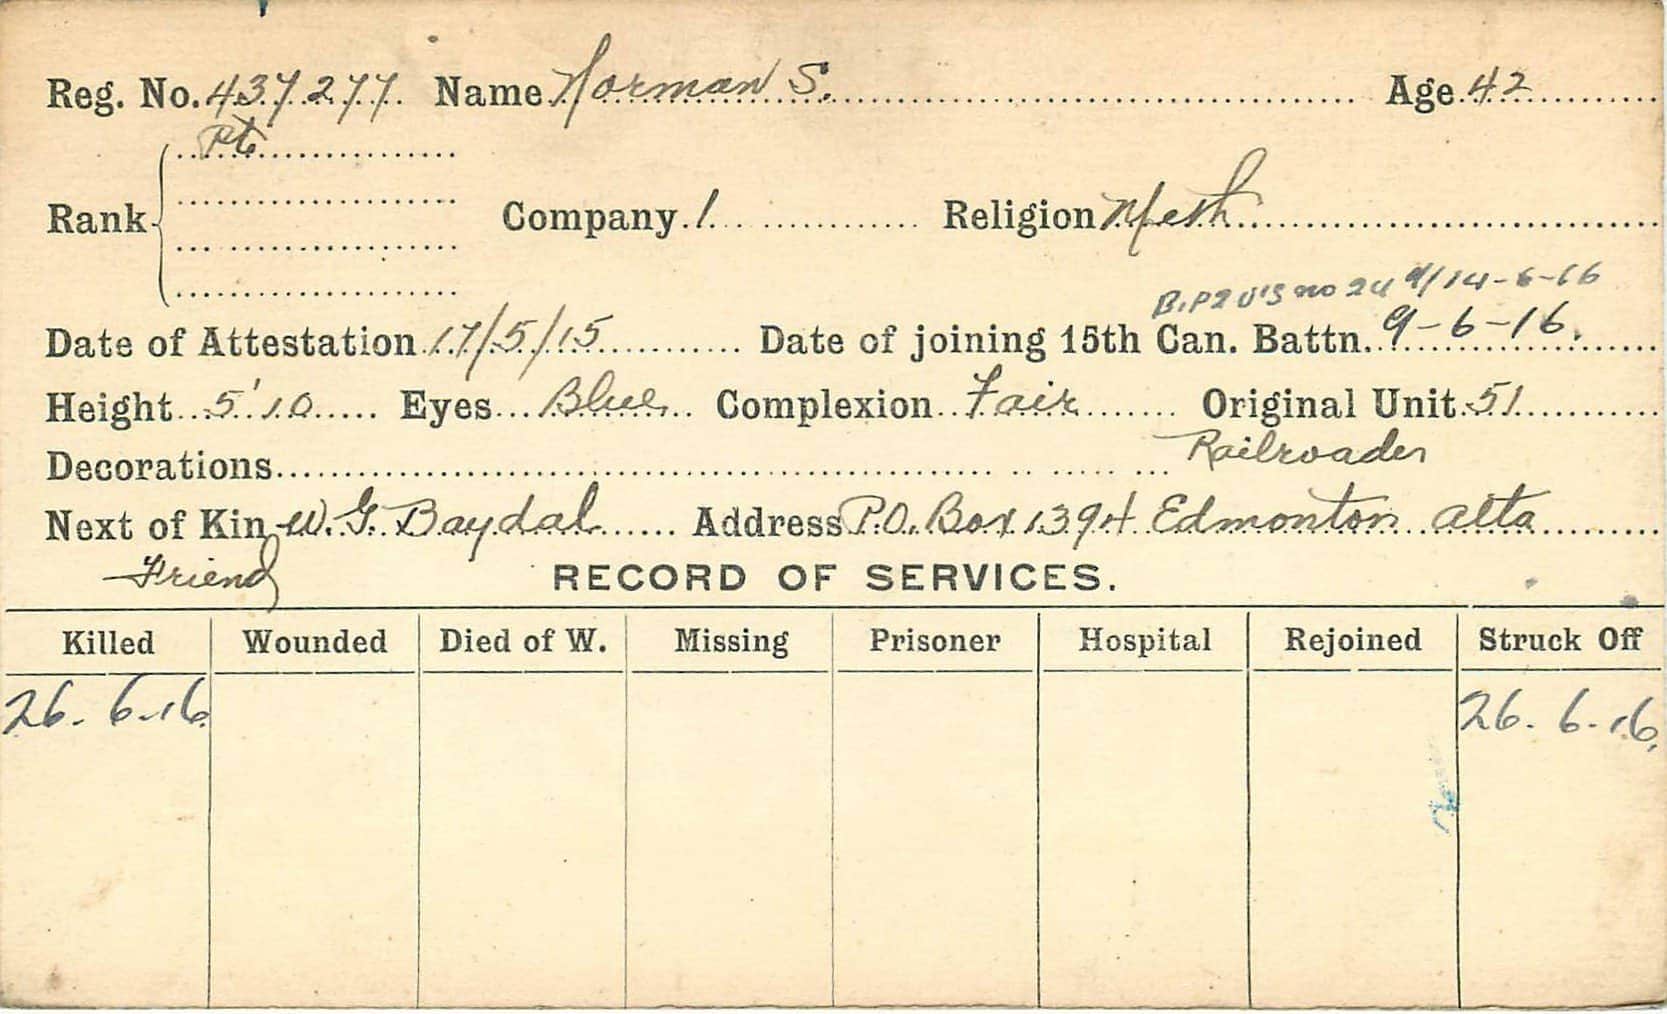 Reg. No. 437277 Name Norman S. Age 42
Pte
Rank Company 1 Religion Meth
B.P2 0'S no 24 14-6-16
Date of Attestation 17/5/15 Date of joining 15th Can. Battn. 9-6-16.
Height 5'10 Eyes Blue Complexion Fair Original Unit 51
Decorations Railroader
Next of Kin W. G. Baydal Address P.O. Box 1394 Edmonton Alta
Friend RECORD OF SERVICES.
Killed Wounded Died of W. Missing Prisoner Hospital Rejoined Struck Off
26.6-16 26.6-16.